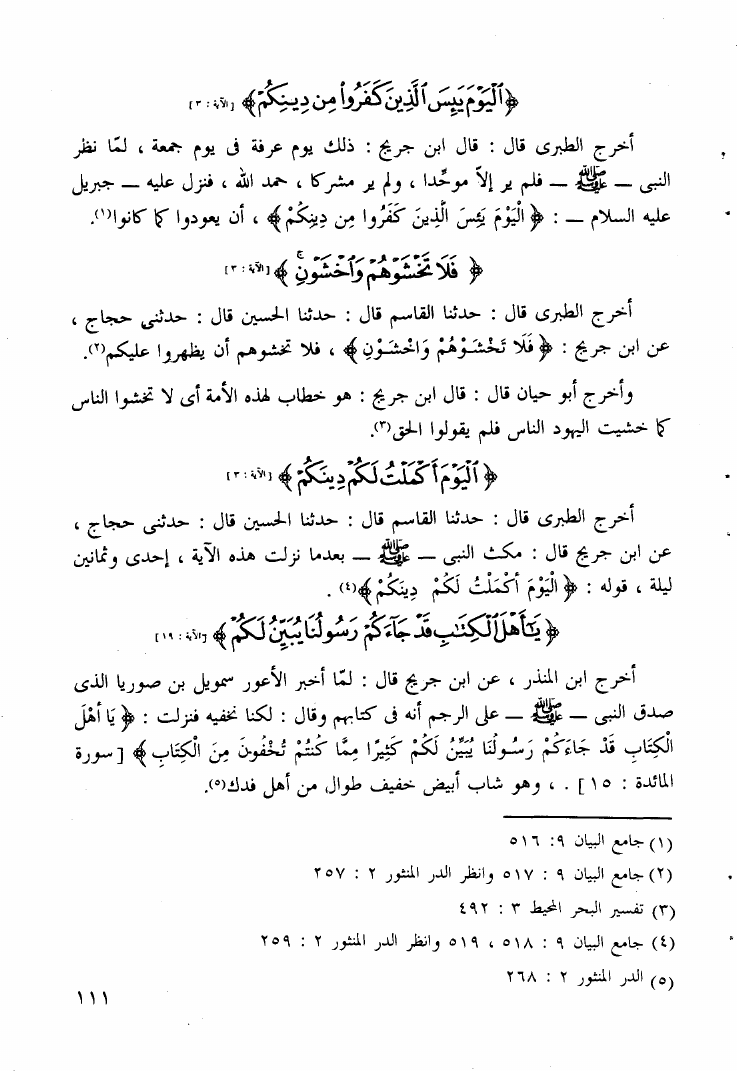 ﴿ ٱلْيَوْمَ يَئِسَ ٱلَّذِينَ كَفَرُوا۟ مِن دِينِكُمْ ﴾ [الآية : ٣]
أخرج الطبرى قال : قال ابن جريج : ذلك يوم عرفة فى يوم جمعة ، لمّا نظر
النبى ــ ﷺ ــ فلم ير إلاّ موحِّدا ، ولم ير مشركا ، حمد الله ، فنزل عليه ــ جبريل
عليه السلام ــ : ﴿ الْيَوْمَ يَئِسَ الَّذِينَ كَفَرُوا مِن دِينِكُمْ ﴾ ، أن يعودوا كما كانوا(١).
﴿ فَلَا تَخْشَوْهُمْ وَٱخْشَوْنِ ۚ ﴾ [الآية : ٣]
أخرج الطبرى قال : حدثنا القاسم قال : حدثنا الحسين قال : حدثنى حجاج ،
عن ابن جريج : ﴿ فَلَا تَخْشَوْهُمْ وَاخْشَوْنِ ﴾ ، فلا تخشوهم أن يظهروا عليكم(٢).
وأخرج أبو حيان قال : قال ابن جريج : هو خطاب لهذه الأمة أى لا تخشوا الناس
كما خشيت اليهود الناس فلم يقولوا الحق(٣).
﴿ ٱلْيَوْمَ أَكْمَلْتُ لَكُمْ دِينَكُمْ ﴾ [الآية : ٣]
أخرج الطبرى قال : حدثنا القاسم قال : حدثنا الحسين قال : حدثنى حجاج ،
عن ابن جريج قال : مكث النبى ــ ﷺ ــ بعدما نزلت هذه الآية ، إحدى وثمانين
ليلة ، قوله : ﴿ الْيَوْمَ أَكْمَلْتُ لَكُمْ دِينَكُمْ ﴾(٤) .
﴿ يَـٰٓأَهْلَ ٱلْكِتَـٰبِ قَدْ جَآءَكُمْ رَسُولُنَا يُبَيِّنُ لَكُمْ ﴾ [الآية : ١٩]
أخرج ابن المنذر ، عن ابن جريج قال : لمّا أخبر الأعور سمويل بن صوريا الذى
صدق النبى ــ ﷺ ــ على الرجم أنه فى كتابهم وقال : لكنا نخفيه فنزلت : ﴿ يَا أَهْلَ
الْكِتَابِ قَدْ جَاءَكُمْ رَسُولُنَا يُبَيِّنُ لَكُمْ كَثِيرًا مِمَّا كُنتُمْ تُخْفُونَ مِنَ الْكِتَابِ ﴾ [ سورة
المائدة : ١٥ ] . ، وهو شاب أبيض خفيف طوال من أهل فدك(٥).
(١) جامع البيان ٩: ٥١٦
(٢) جامع البيان ٩ : ٥١٧ وانظر الدر المنثور ٢ : ٢٥٧
(٣) تفسير البحر المحيط ٣ : ٤٩٢
(٤) جامع البيان ٩ : ٥١٨ ، ٥١٩ وانظر الدر المنثور ٢ : ٢٥٩
(٥) الدر المنثور ٢ : ٢٦٨
١١١